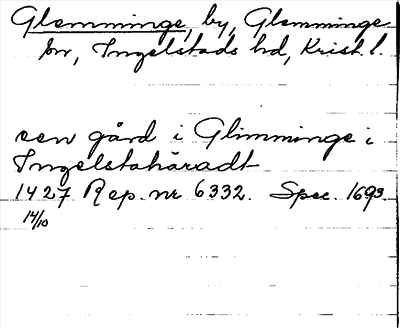 Glemminge, by, Glemminge
sn, Ingelstads hd, Krist. l.
een gård i Glimminge i
Ingelstahäradt
1427 Rep. nr 6332. Spec. 1693
14/10